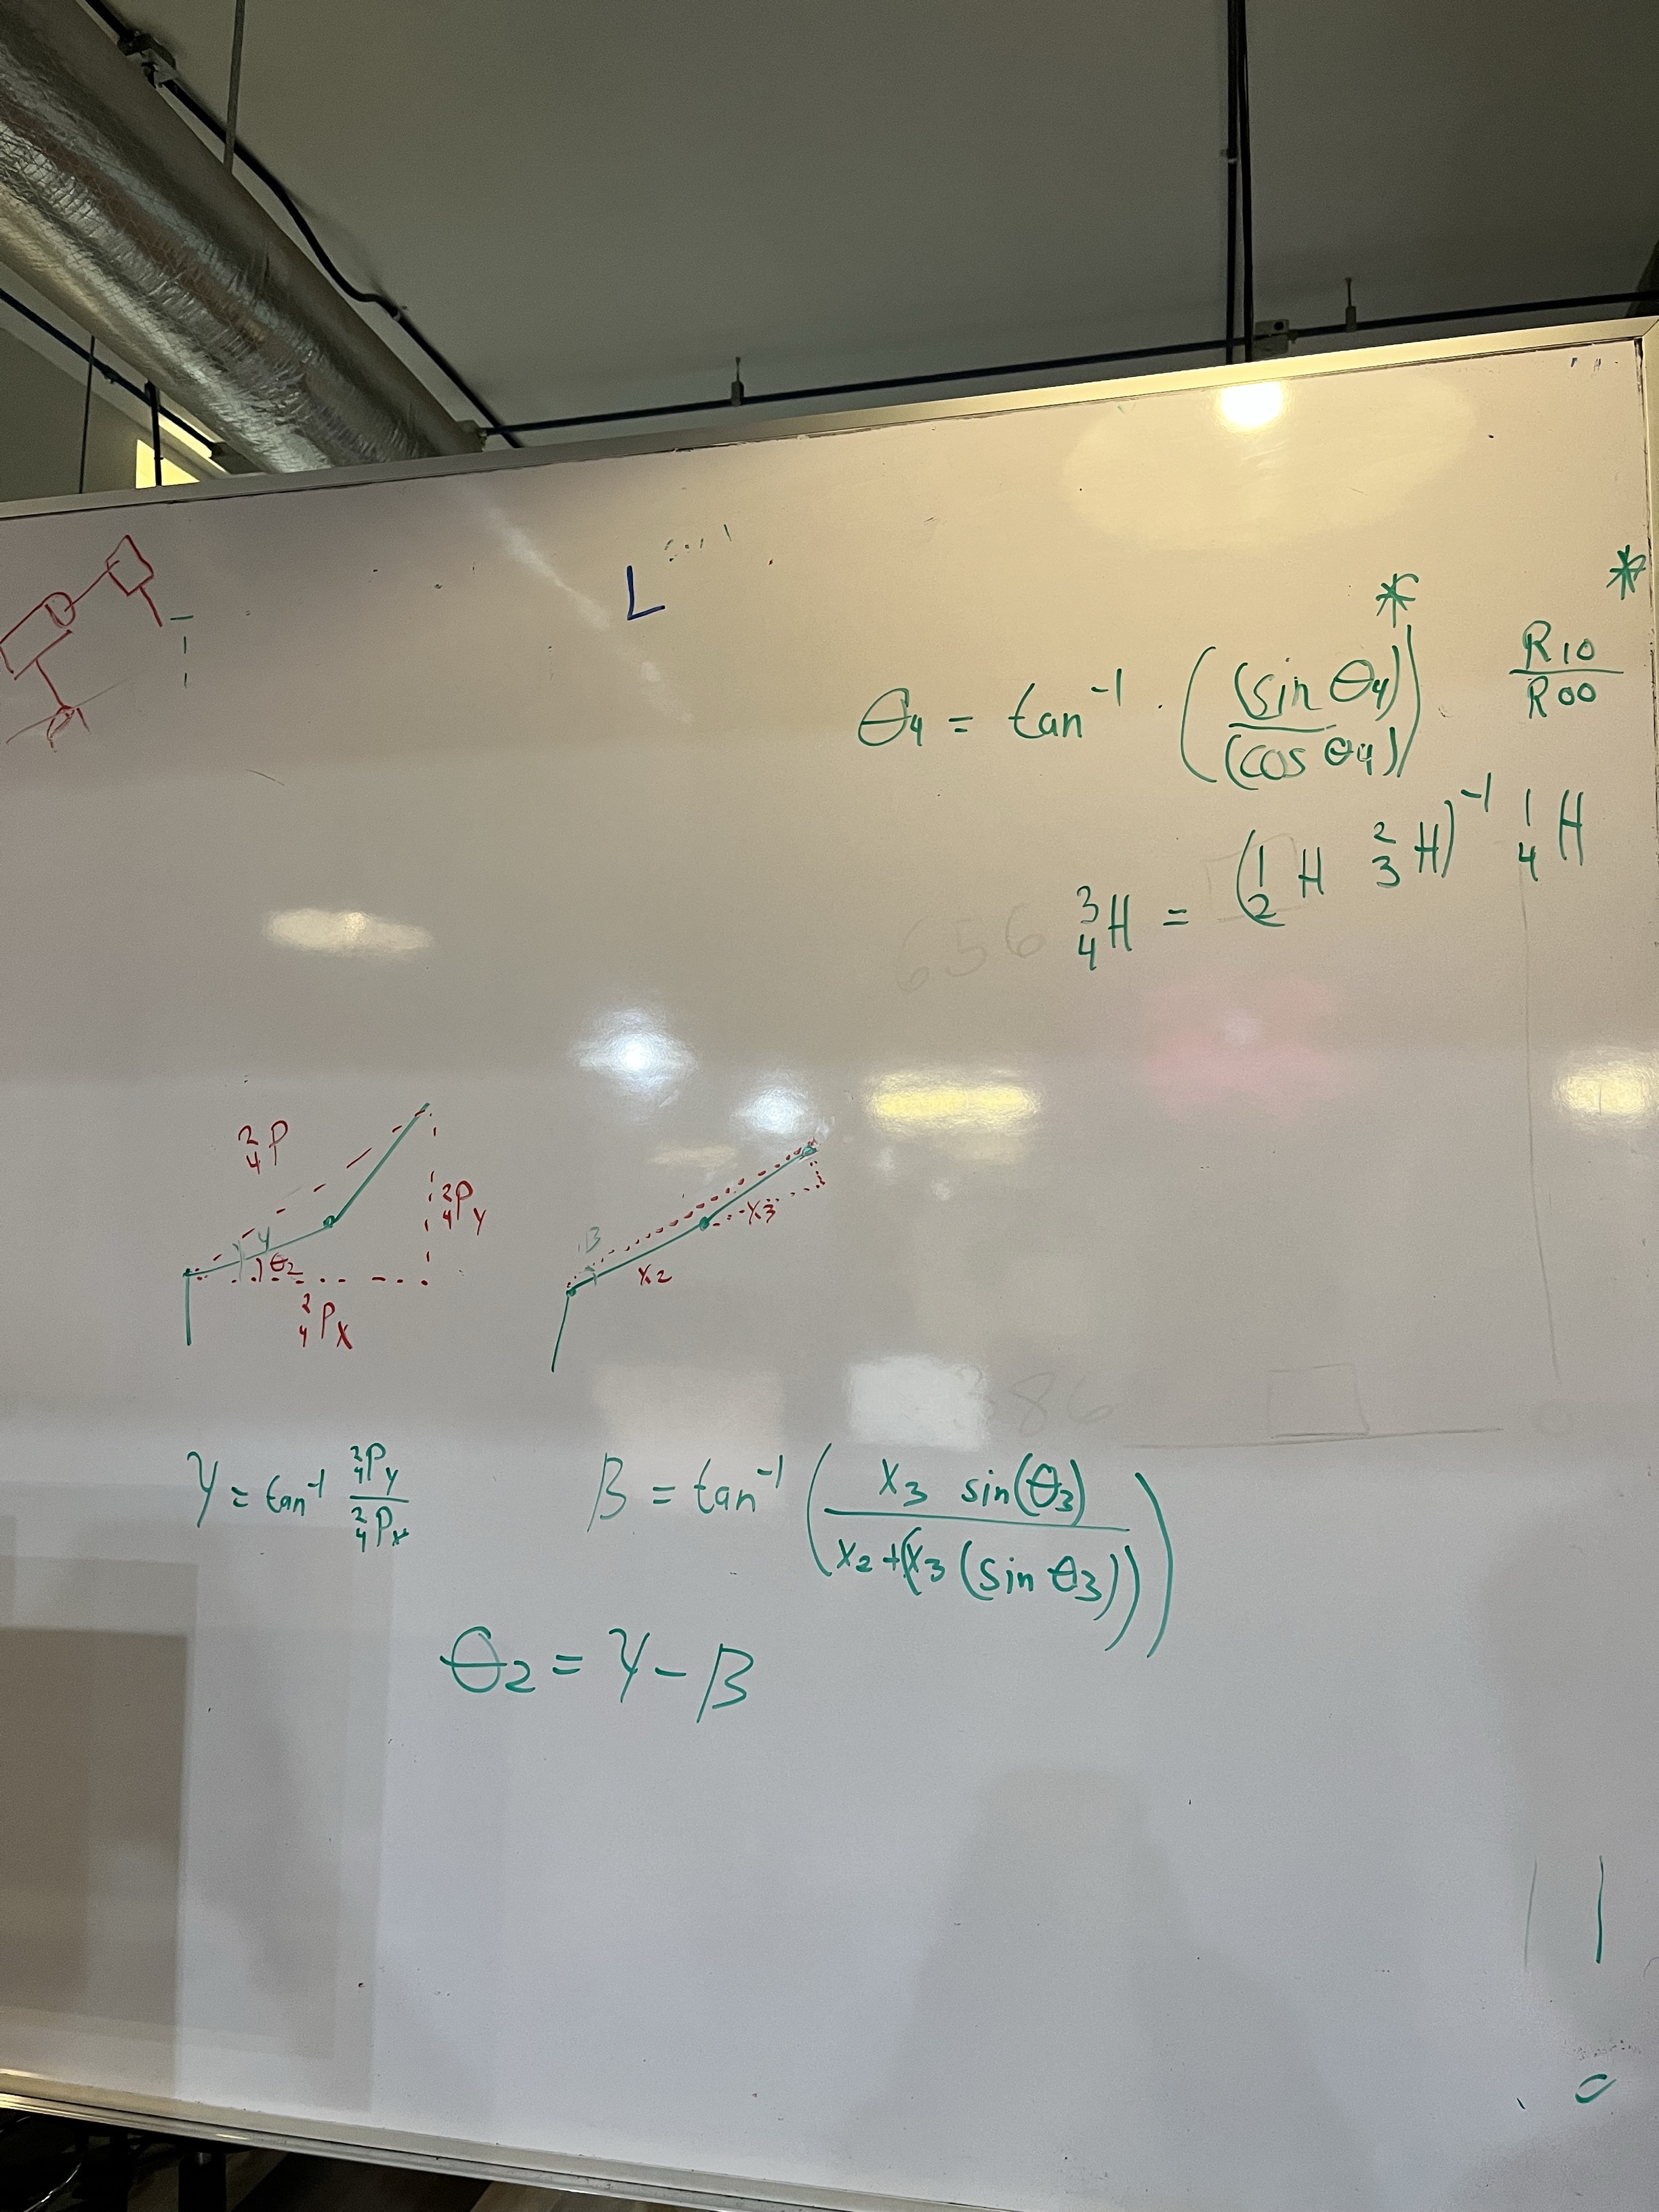 L
*
*
θ4 = tan⁻¹ · ((sin θ4) / (cos θ4)) R10 / R00
³₄H = (¹₂H ²₃H)⁻¹ ¹₄H
656
²₄P
²₄Py
γ
θ2
²₄Px
β
x3
x2
386
γ = tan⁻¹ ²₄Py / ²₄Px
β = tan⁻¹ (x3 sin(θ3) / x2 + (x3 (sin θ3)))
θ2 = γ - β